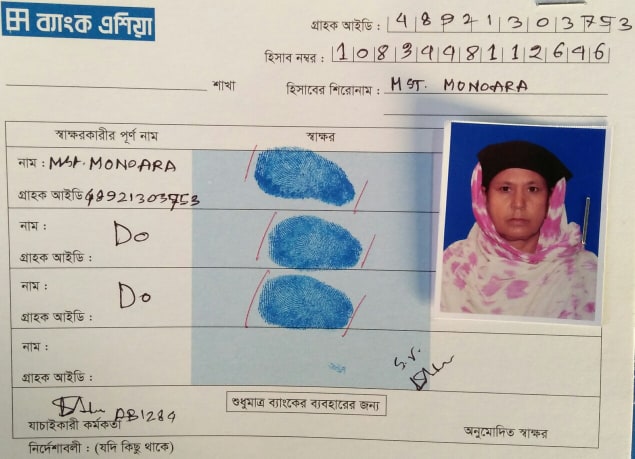 ব্যাংক এশিয়া
গ্রাহক আইডি : 48921303753
হিসাব নম্বর : 1083448112646
শাখা
হিসাবের শিরোনাম : MST. MONOARA
স্বাক্ষরকারীর পূর্ণ নাম স্বাক্ষর
নাম : Mst. MONOARA
গ্রাহক আইডি 48921303753
নাম :
Do
গ্রাহক আইডি :
নাম :
Do
গ্রাহক আইডি :
নাম :
গ্রাহক আইডি :
S.V.
শুধুমাত্র ব্যাংকের ব্যবহারের জন্য
AB1284
যাচাইকারী কর্মকর্তা
অনুমোদিত স্বাক্ষর
নির্দেশাবলী : (যদি কিছু থাকে)